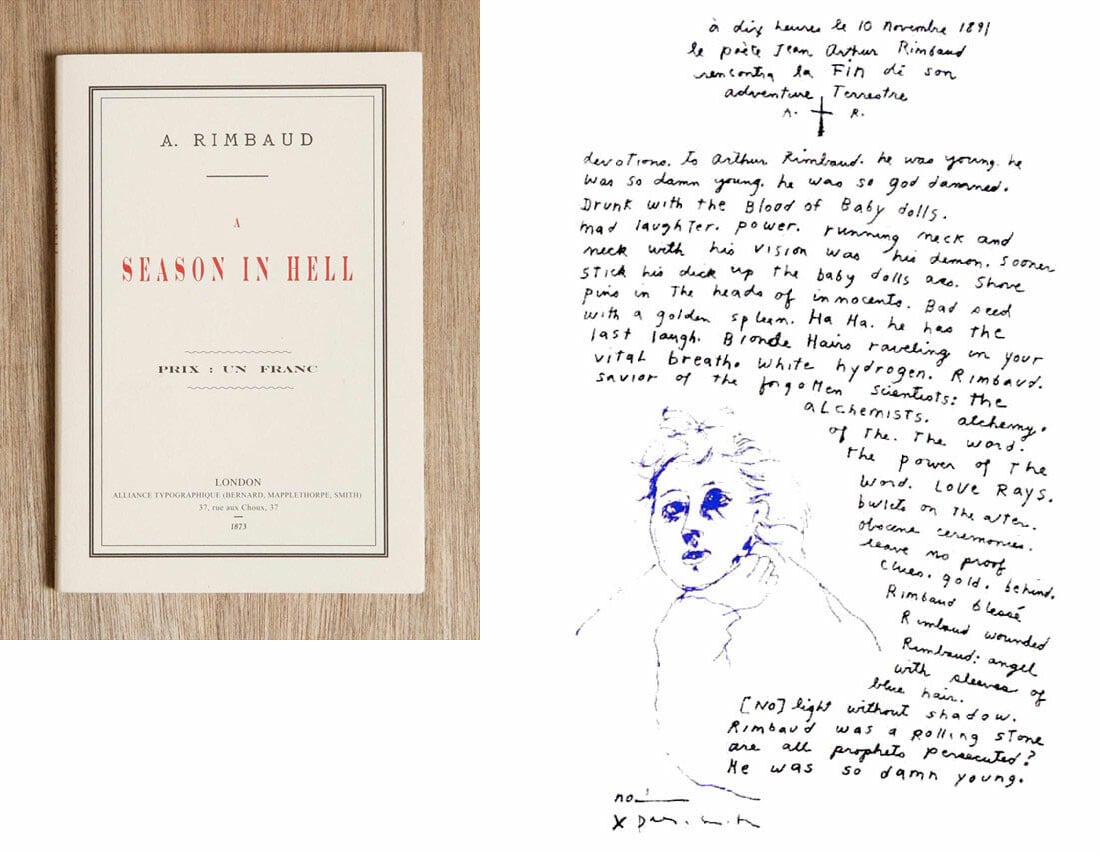 A. RIMBAUD
A
SEASON IN HELL
PRIX : UN FRANC
LONDON
ALLIANCE TYPOGRAPHIQUE (BERNARD, MAPPLETHORPE, SMITH)
37, rue aux Choux, 37
1873
à dix heures le 10 Novembre 1891
le poète Jean Arthur Rimbaud
rencontra la Fin de son
adventure Terrestre
A. R.
devotions. to Arthur Rimbaud. he was young. he
was so damn young. he was so god damned.
Drunk with the Blood of Baby dolls.
mad laughter. power. running neck and
neck with his vision was his demon. sooner
stick his dick up the baby dolls ass. Shove
pins in The heads of innocents. Bad seed
with a golden spleen. Ha Ha. he has the
last laugh. Blonde Hairs raveling in your
vital breath. white hydrogen. Rimbaud.
savior of the forgotten scientists: the
aLchemists. alchemy.
of The. The word.
the power of The
word. LOVE RAYS.
bullets on The alter.
obscene ceremonies.
leave no proof
clues. gold. behind.
Rimbaud blessé
Rimbaud wounded
Rimbaud: angel
with sleeves of
blue hair.
[NO] light without shadow.
Rimbaud was a Rolling stone
are all prophets persecuted?
He was so damn young.
no.
X